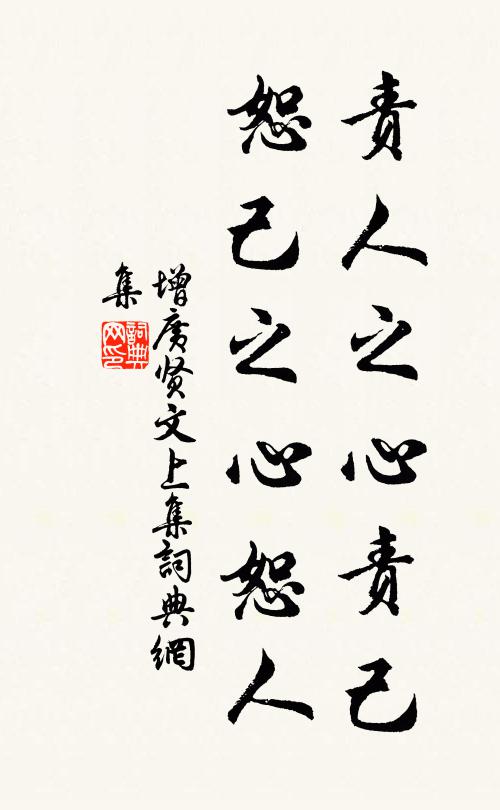 责人之心责己
恕己之心恕人
增廣贤文上集詞典網
集
詞典网印